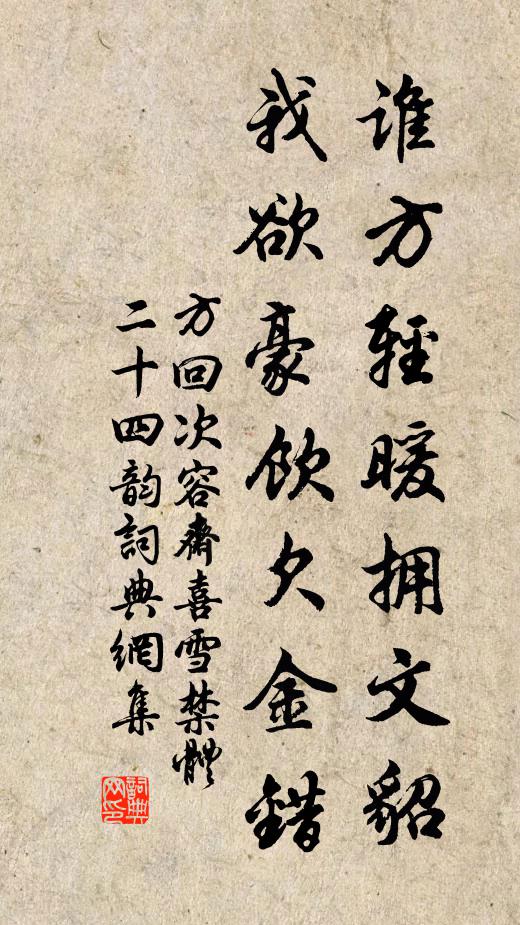 谁方輕暖拥文貂
我欲豪飲欠金錯
方回次容齋喜雪禁體
二十四韵詞典網集
詞典
网印